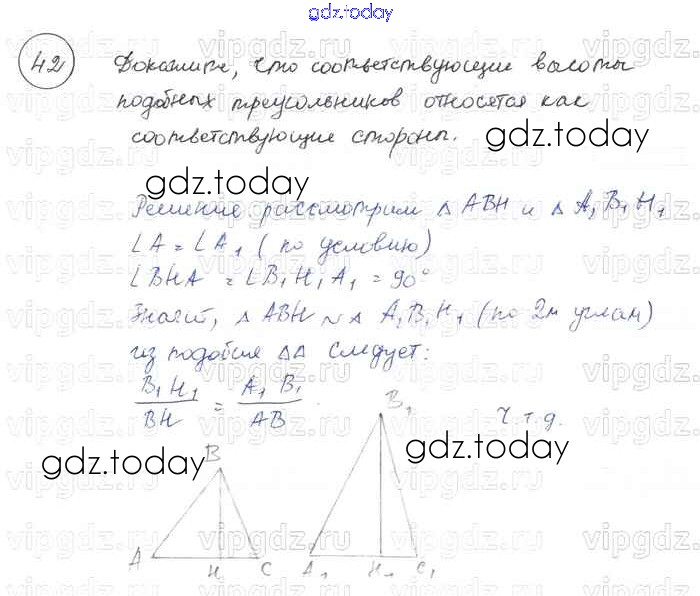 gdz.today
42
Докажите, что соответствующие высоты
подобных треугольников относятся как
соответствующие стороны.
gdz.today
gdz.today
Решение: рассмотрим △ ABH и △ A₁ B₁ H₁
∠A = ∠A₁ (по условию)
∠BHA = ∠B₁H₁A₁ = 90°
Значит, △ ABH ~ △ A₁B₁H₁ (по 2м углам)
из подобия △△ следует:
B₁H₁ / BH = A₁B₁ / AB
ч.т.д.
gdz.today
gdz.today
B
B₁
A H C A₁ H₁ C₁
vipgdz.ru